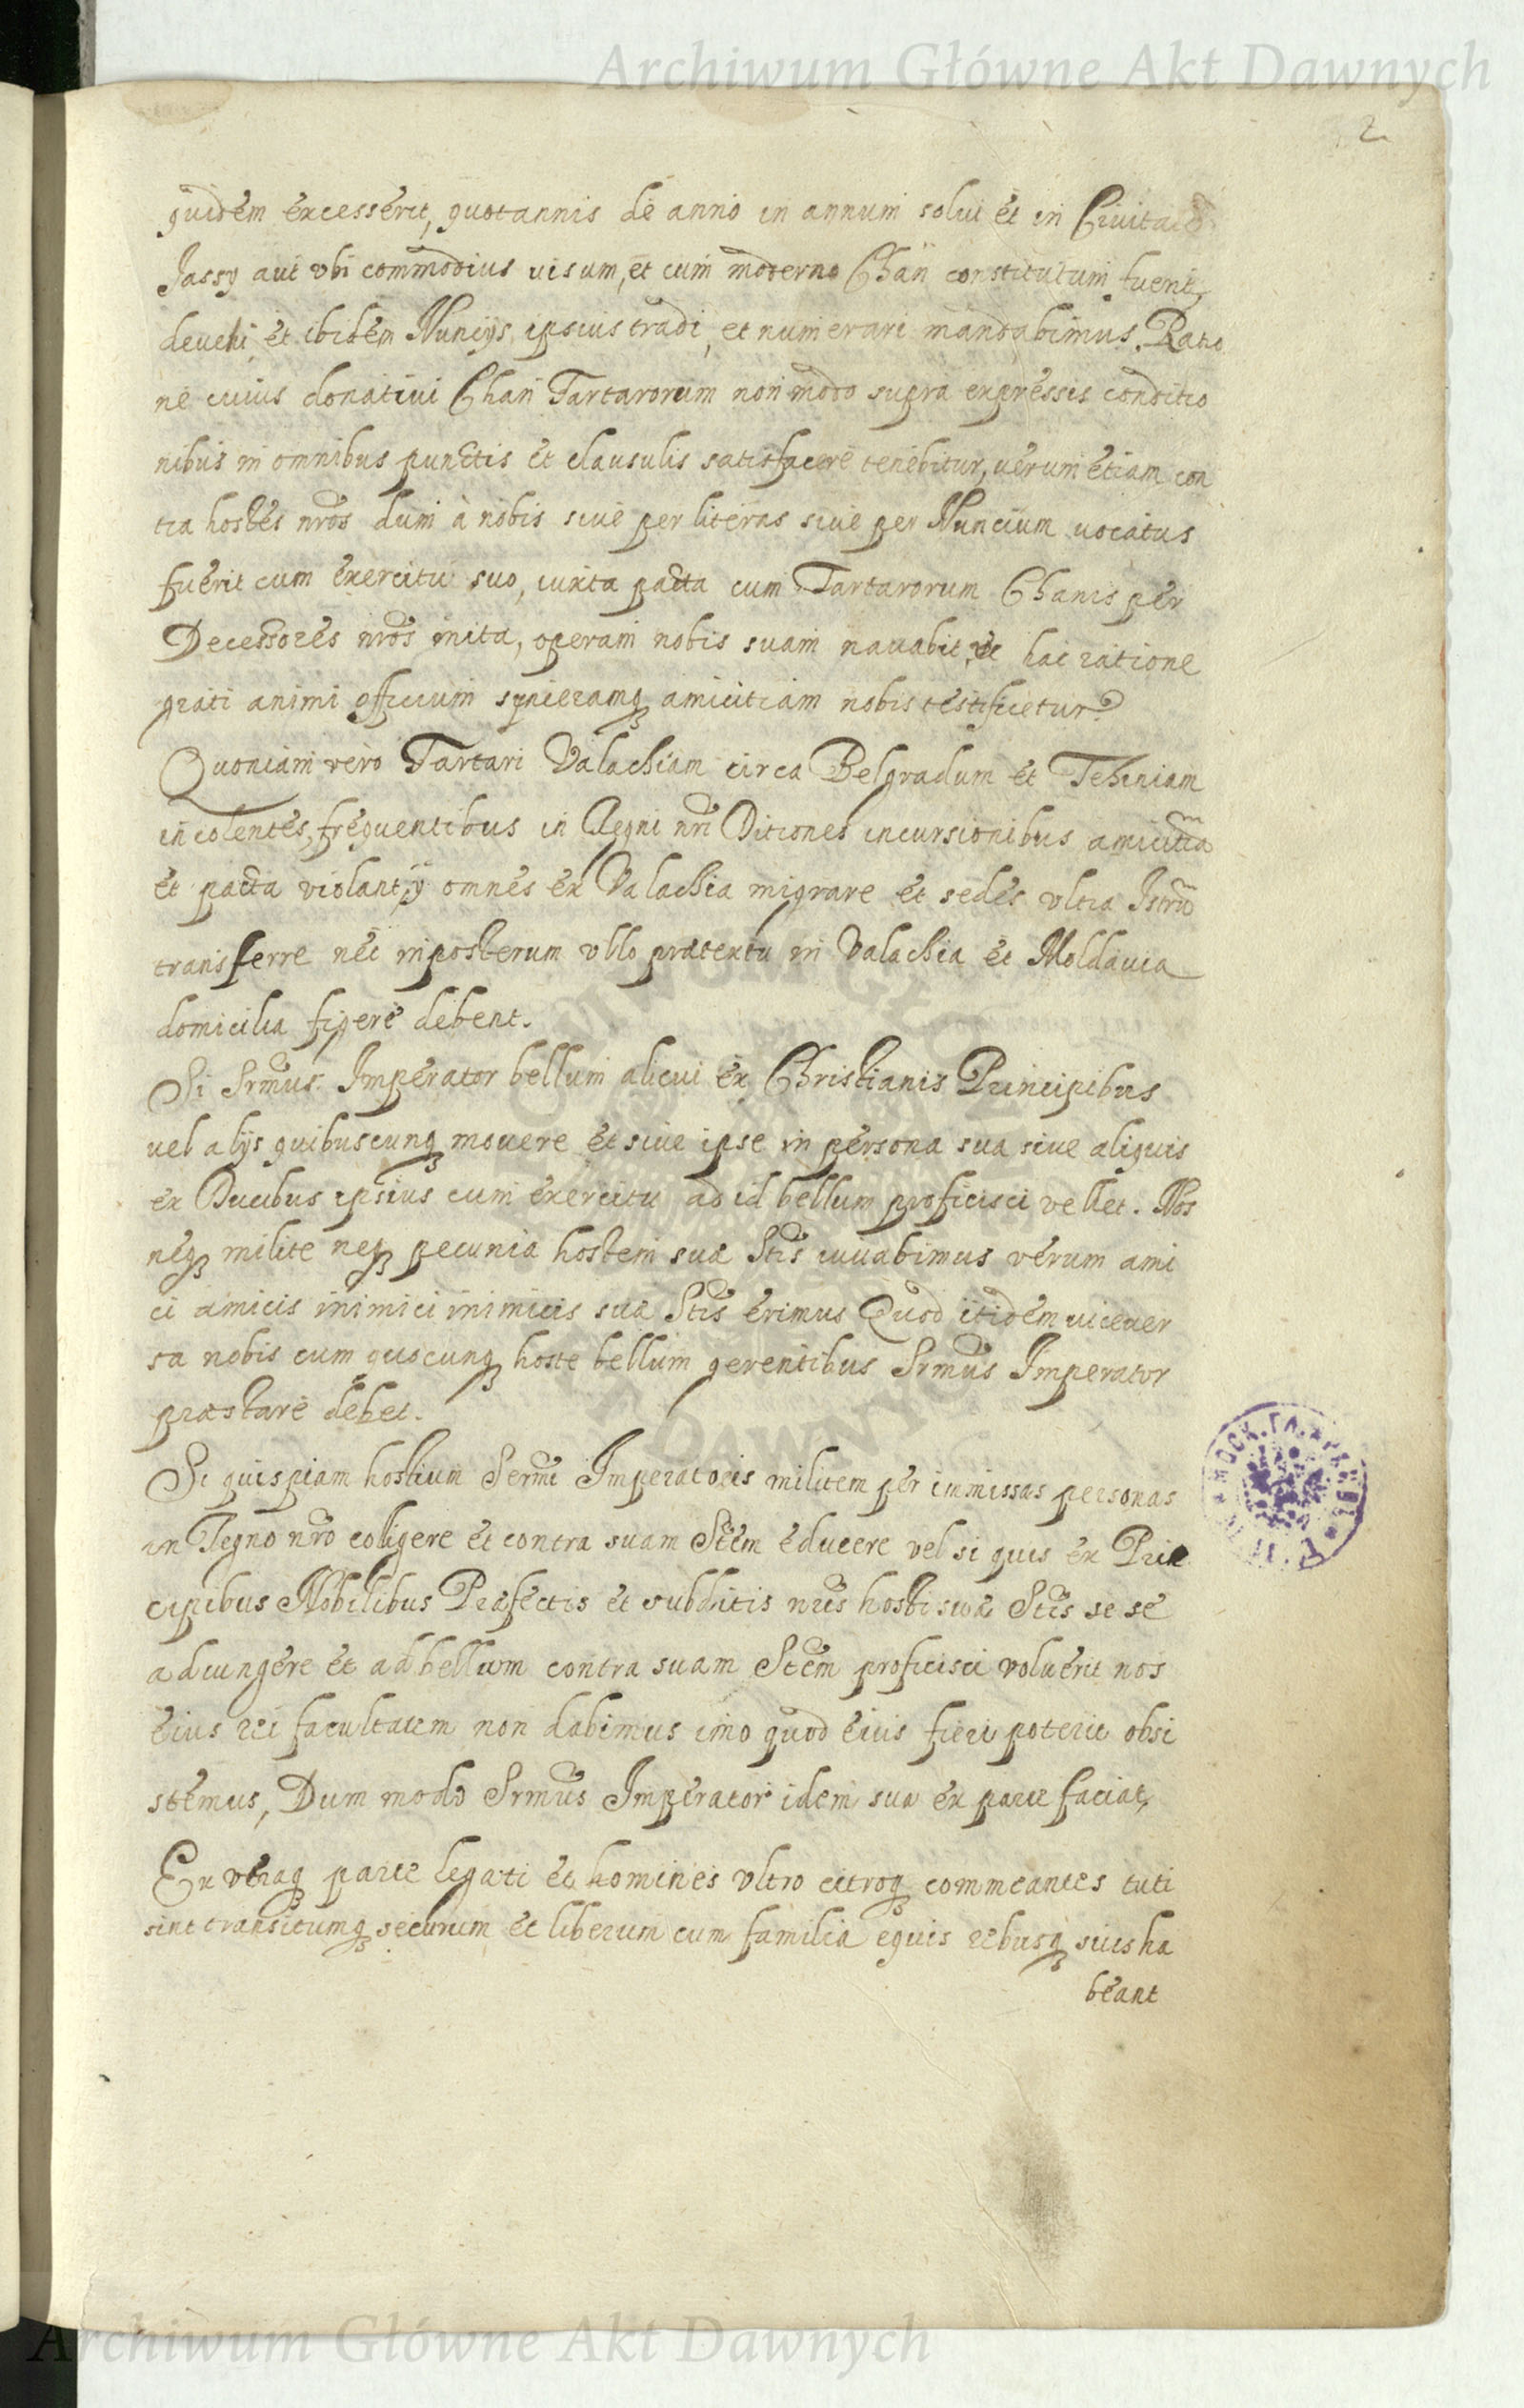 Archiwum Główne Akt Dawnych
2
quidem excesserit, quotannis de anno in annum solui et in Ciuitate
Jassy aut vbi commodius uisum, et cum moderno Chan constitutum fuerit,
deuehi et ibidem Nuncijs ipsius tradi, et numerari mandabimus. Ratio
ne cuius donatiui Chan Tartarorum non modo supra expressis conditio
nibus in omnibus punctis et clausulis satisfacere tenebitur, uerum etiam con
tra hostes nros dum à nobis siue per literas siue per Nuncium uocatus
fuerit cum exercitu suo, iuxta pacta cum Tartarorum Chanis per
Decessores nros inita, operam nobis suam nauabit, et hac ratione
grati animi officium synceramq amicitiam nobis testificetur.
Quoniam vero Tartari Valachiam circa Belgradum et Tehiniam
incolentes, frequentibus in Regni nri Ditiones incursionibus amicitia
et pacta violant, ij omnes ex Valachia migrare et sedes vltra Istru
transferre nec inposterum vllo prætextu in Valachia et Moldauia
domicilia figere debent.
Si Srmus. Imperator bellum alicui ex Christianis Principibus
uel alijs quibuscunq mouere et siue ipse in persona sua siue aliquis
ex Ducibus ipsius cum exercitu ad id bellum proficisci vellet. Nos
neq milite neq pecunia hostem suæ Stis iuuabimus verum ami
ci amicis inimici inimicis suæ Stis erimus Quod itidem uiceuer
sa nobis cum quocunq hoste bellum gerentibus Srmus Imperator
præstare debet.
Si quispiam hostium Sermi Imperatoris militem per immissas personas
in Regno nro coligere et contra suam Stem educere vel si quis ex Prin
cipibus Nobilibus Præfectis et subditis nris hosti suæ Stis se se
adiungere et ad bellum contra suam Stem proficisci voluerit nos
eius rei facultatem non dabimus imo quod eius fieri poterit obsi
stemus, Dum modo Srmus Imperator idem sua ex parte faciat,
Ex vtraq parte legati et homines vltro citroq commeantes tuti
sint transitumq securum et liberum cum familia equis rebusq suis ha
beant
Archiwum Główne Akt Dawnych